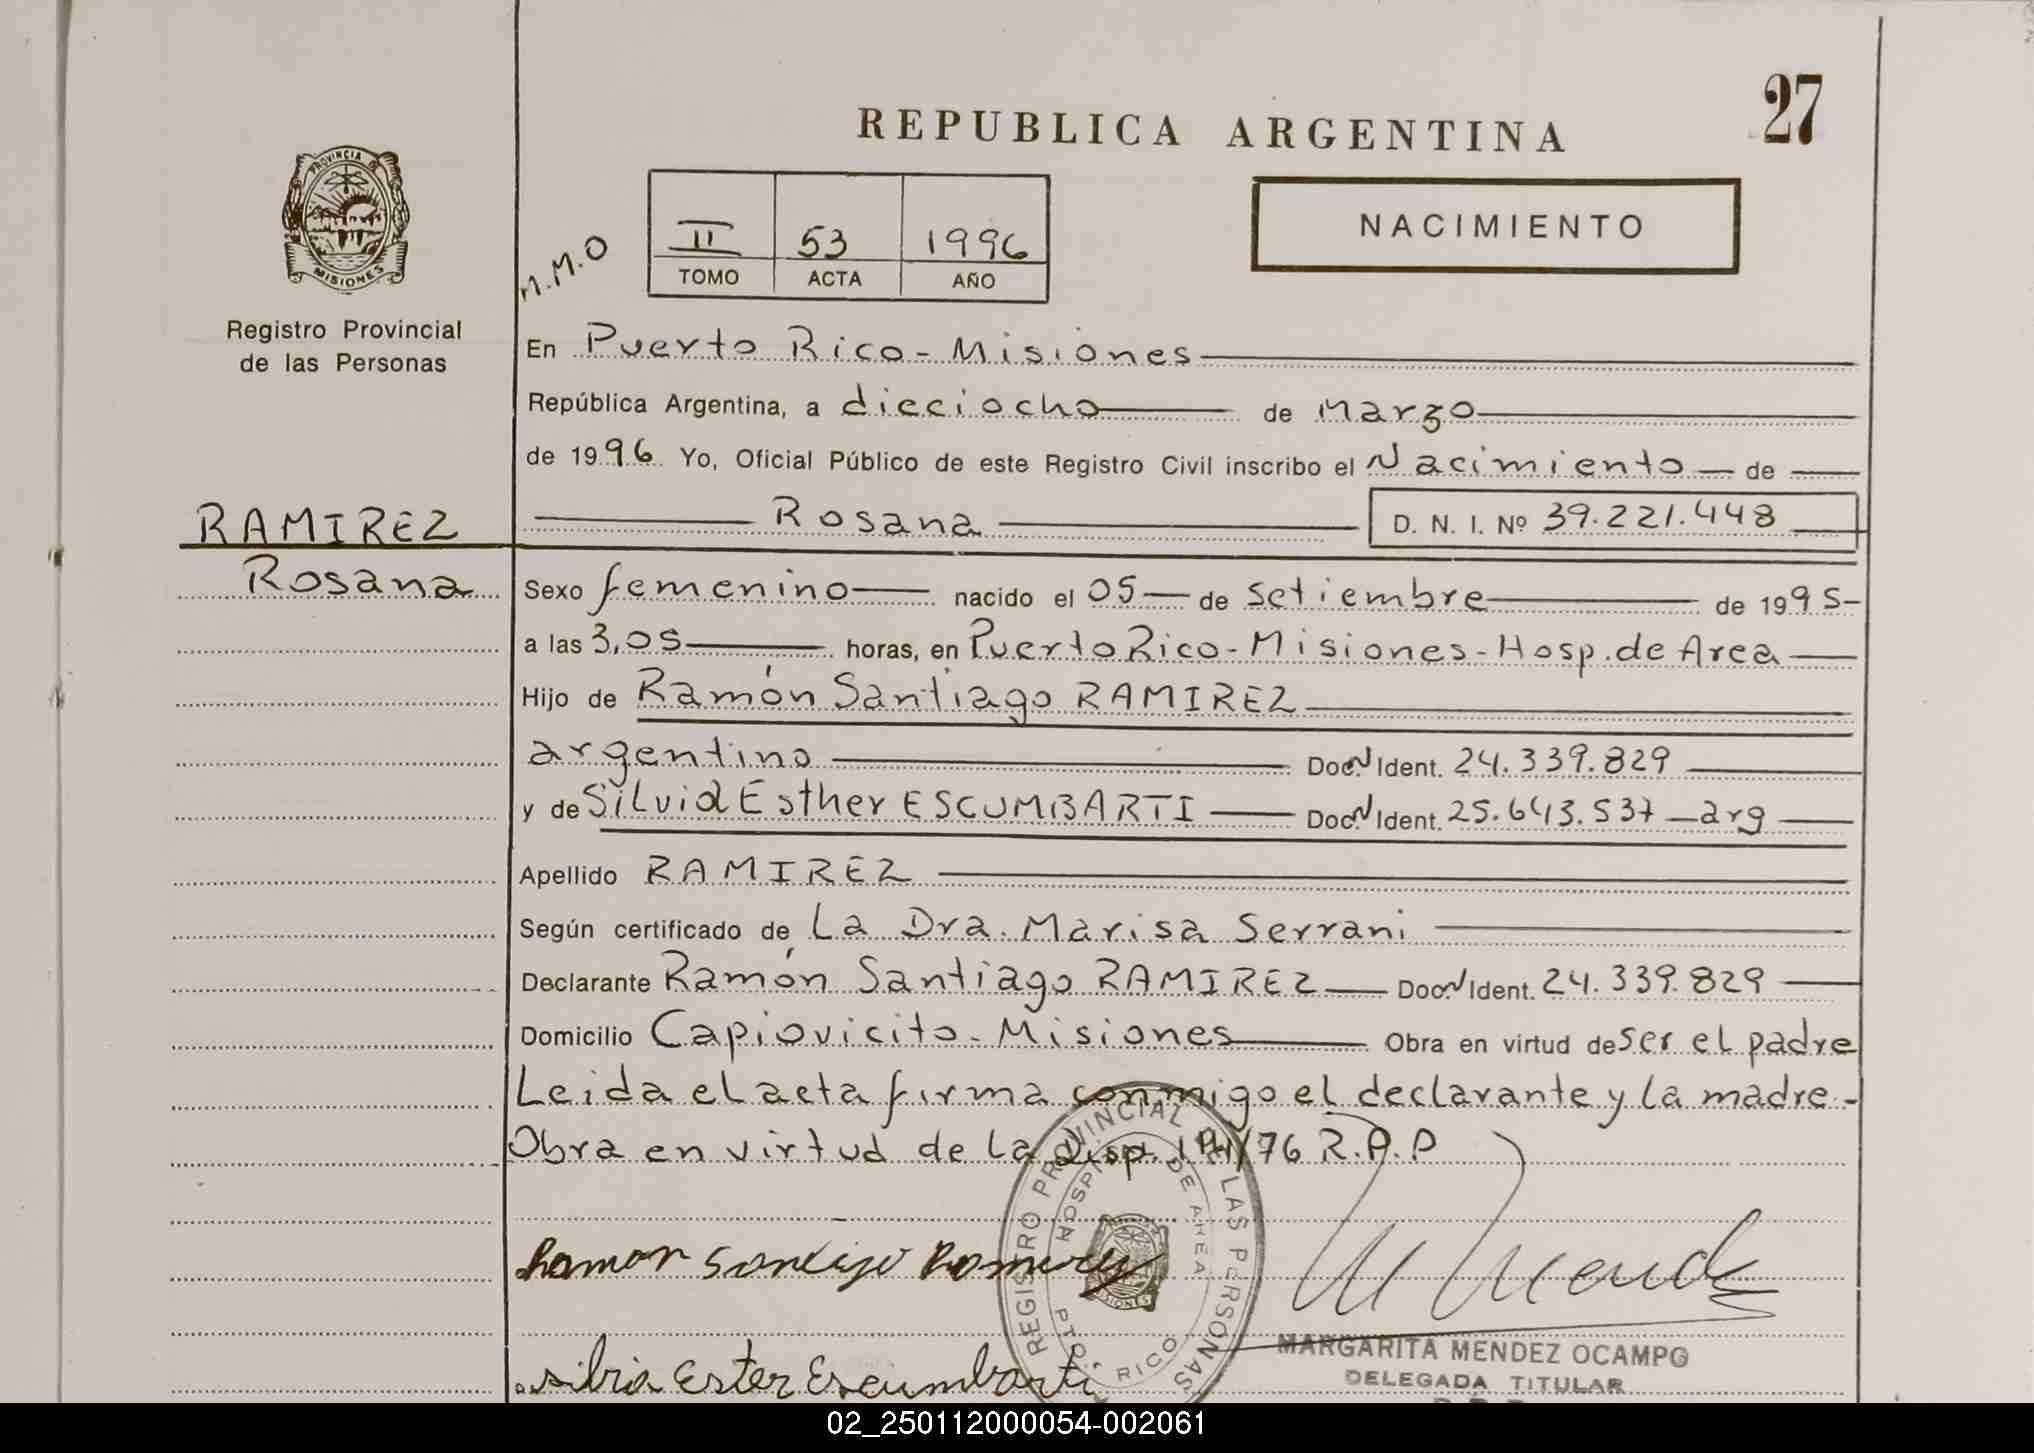 27
REPUBLICA ARGENTINA
PROVINCIA DE
MISIONES
Registro Provincial
de las Personas
M.M.O
II 53 1996
TOMO ACTA AÑO
NACIMIENTO
En Puerto Rico - Misiones
República Argentina, a dieciocho de Marzo
de 1996 Yo, Oficial Público de este Registro Civil inscribo el Nacimiento de
RAMIREZ
Rosana
Rosana D. N. I. Nº 39.221.448
Sexo femenino nacido el 05 de setiembre de 1995
a las 3,05 horas, en Puerto Rico - Misiones - Hosp. de Area
Hijo de Ramón Santiago RAMIREZ
argentino Doc. N Ident. 24.339.829
y de Silvia Esther ESCUMBARTI Doc. N Ident. 25.643.537 - arg
Apellido RAMIREZ
Según certificado de La Dra. Marisa Serrani
Declarante Ramón Santiago RAMIREZ Doc. N Ident. 24.339.829
Domicilio Capiovicito - Misiones Obra en virtud de ser el padre
Leida el acta firma conmigo el declarante y la madre.-
Obra en virtud de la Disp. /76 R.P.P
REGISTRO PROVINCIAL DE LAS PERSONAS
HOSPITAL DE AREA
PTO. RICO
MISIONES
Ramon Santiago Ramirez
M Mendez
silvia Ester Escumbarti
MARGARITA MENDEZ OCAMPO
DELEGADA TITULAR
02_250112000054-002061